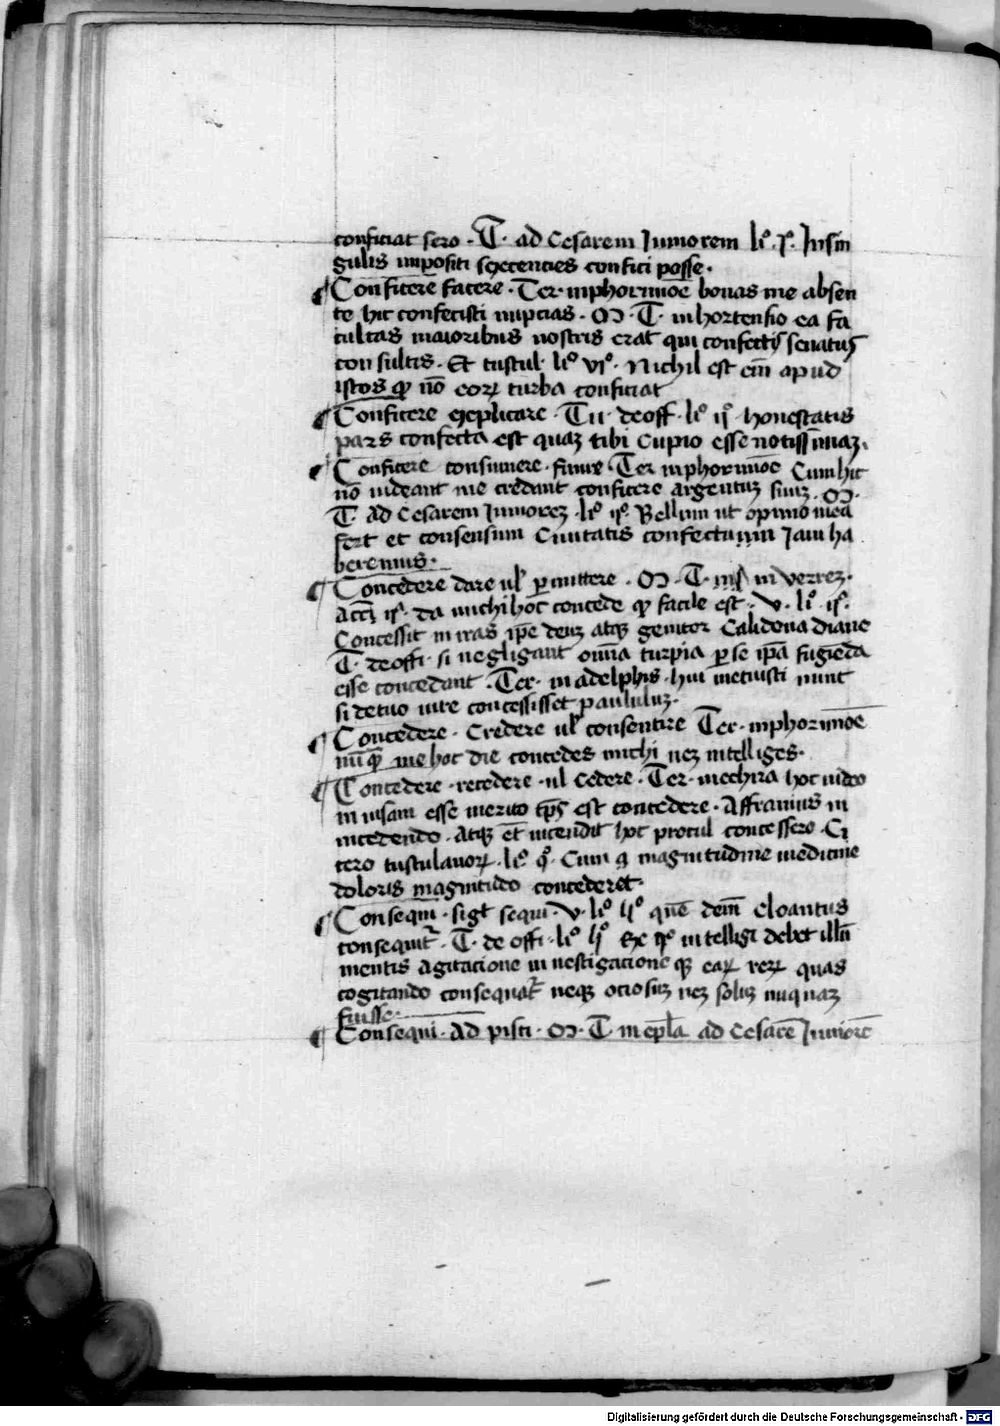 conficiat sero · T · ad Cesarem Iuniorem li° · i° · In sin
gulis impositi sexcenties confici posse ·
¶ Conficere facere · Ter · in phormiõe bonas me absen
te hic confecisti nupcias · M · T · in hortensio ea fa
cultas maioribus nostris erat qui confectis senatus
consultis · Et tuscul · li° v° · Nichil est em̄ apud
istos q nō eoꝝ turba conficiat
¶ Conficere explicare · Tu · de off · li° ii° honestatis
pars confecta est quaʒ tibi cupio esse notissimaʒ ·
¶ Conficere consumere · finire · Ter in phormiōe Cum hic
nō videant me credant conficere argentuʒ suuʒ · M ·
T · ad Cesarem Iunioreʒ · li° ii° · Bellum ut opinio mea
fert et consensum Ciuitatis confectum iam ha
beremus ·
¶ Concedere dare ul' ꝑmittere · M · T · in verreʒ ·
acc̄i · da michi hoc concede qꝫ facile est · v · li° ii° ·
Concessit in iras ip̄e deuʒ atqꝫ genitor Calidona diane
T · de offi · si negligant om̄ia turpia ꝑ se ip̄a fugiēda
esse concedant · Ter · in adelphis · hui metuisti nunc
si de tuo iure concessisset paululuʒ ·
¶ Concedere · Credere ul' consentire Ter · in phormiōe
nūqꝫ me hoc die concedes michi neʒ intelliges ·
¶ Concedere · recedere · ul cedere · Ter · in echira hoc video
in uisam esse merito tp̄s est concedere · Affranius in
incedendo · atqꝫ et incendit hoc procul concessero · Ci
cero tusculanoꝝ · li° q° · Cum a magnitudine medicine
doloris magnitudo concederet ·
¶ Consequi · sigt sequi · v · li° quē dem̄ cloantus
consequit᷑ · T · de offi · li° Ex quo intelligi debet illū
mentis agitacione investigacione qꝫ eaꝝ reꝝ quas
cogitando consequat᷑ neqꝫ ociosuʒ neʒ soluʒ nuquaʒ
fuisse ·
¶ Consequi · Ad pisci · M · T · in ep̄la ad Cesarē Iuniorē
Digitalisierung gefördert durch die Deutsche Forschungsgemeinschaft - DFG